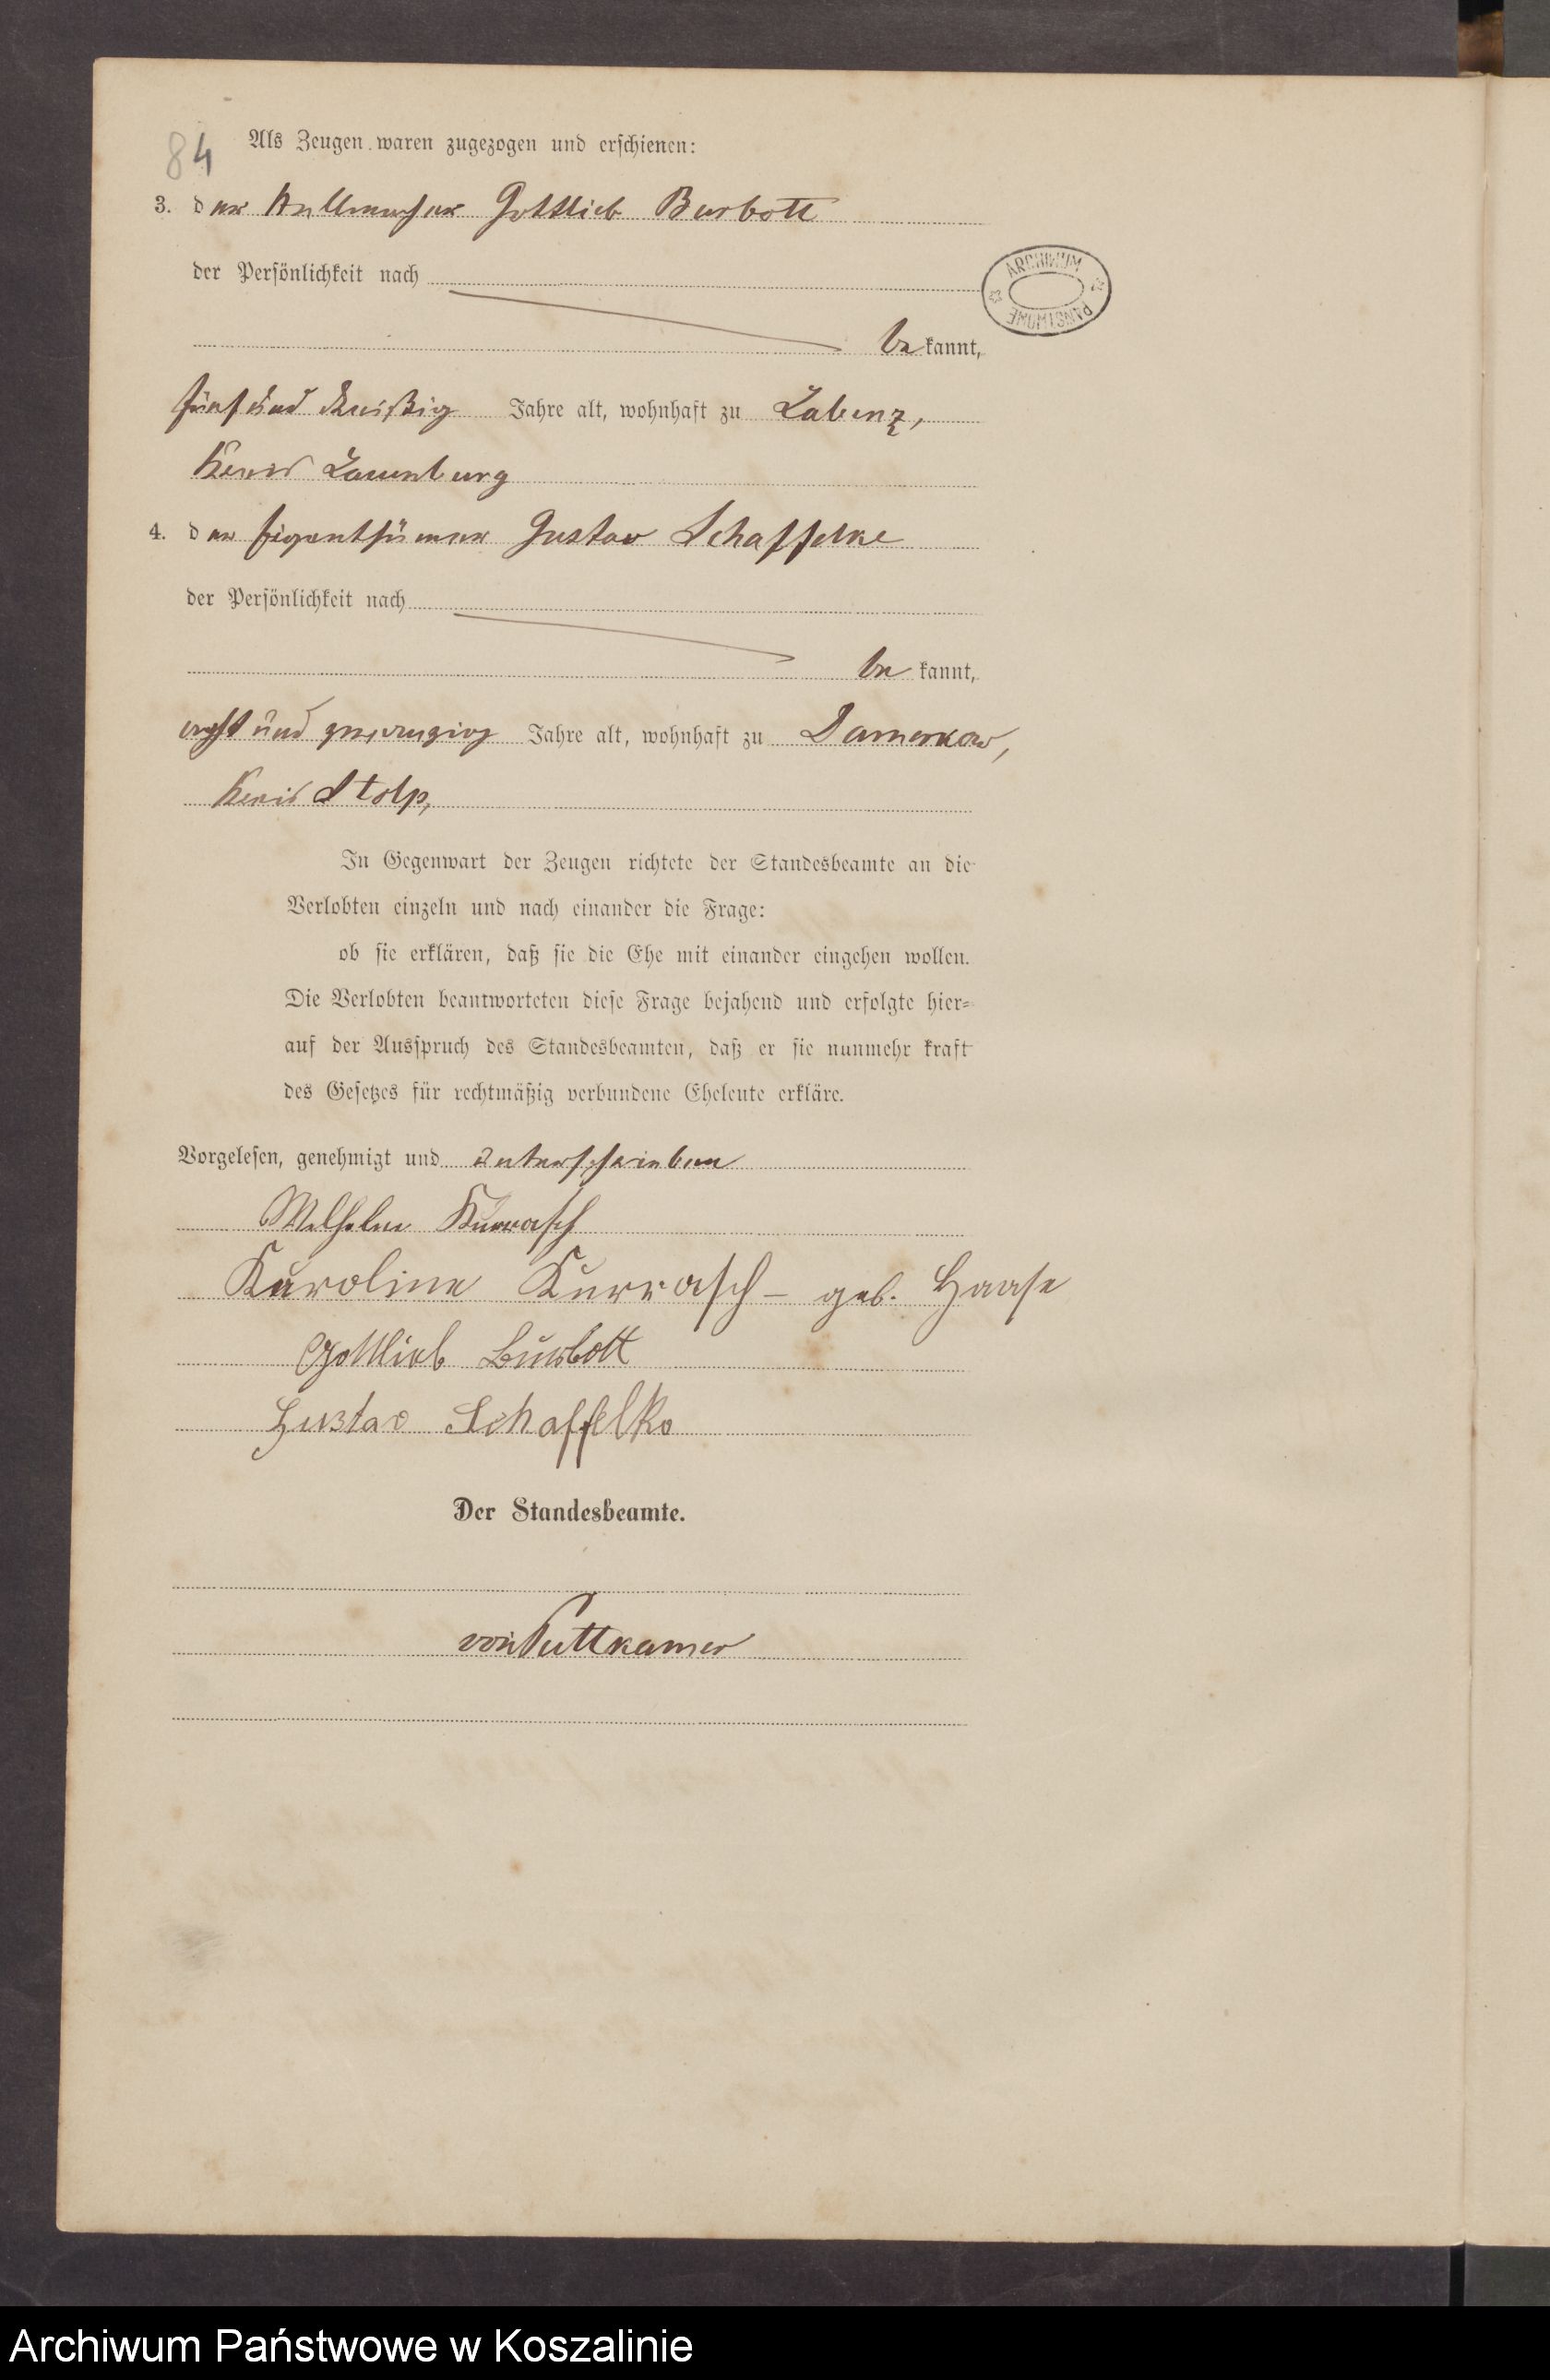 84
Als Zeugen waren zugezogen und erschienen:
3. der Stellmacher Gottlieb Burbott
der Persönlichkeit nach
ARCHIWUM PAŃSTWOWE
bekannt,
fünf und dreißig Jahre alt, wohnhaft zu Labenz,
Kreis Lauenburg
4. der Eigenthümer Gustav Schaffelke
der Persönlichkeit nach
bekannt,
acht und zwanzig Jahre alt, wohnhaft zu Damerkow,
Kreis Stolp,
In Gegenwart der Zeugen richtete der Standesbeamte an die
Verlobten einzeln und nach einander die Frage:
ob sie erklären, daß sie die Ehe mit einander eingehen wollen.
Die Verlobten beantworteten diese Frage bejahend und erfolgte hier-
auf der Ausspruch des Standesbeamten, daß er sie nunmehr kraft
des Gesetzes für rechtmäßig verbundene Eheleute erkläre.
Vorgelesen, genehmigt und unterschrieben
Wilhelm Kurrasch
Karoline Kurrasch - geb. Haase
Gottlieb Burbott
Gustav Schaffelko
Der Standesbeamte.
von Puttkamer
Archiwum Państwowe w Koszalinie